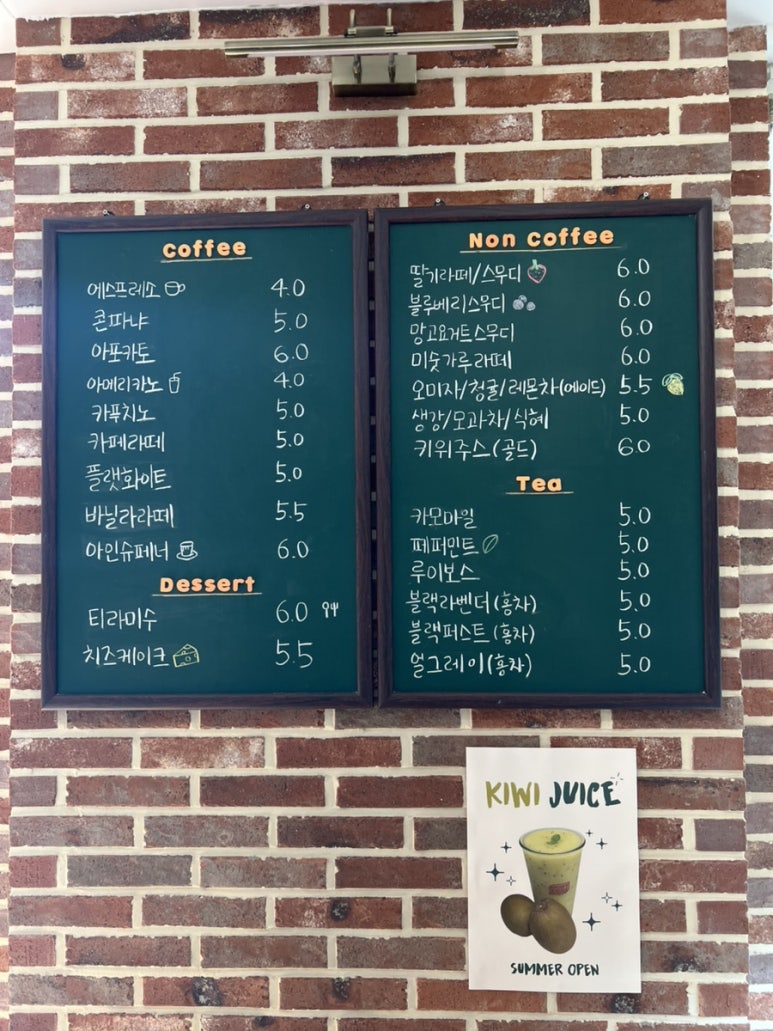 Coffee
에스프레소 4.0
콘파냐 5.0
아포카토 6.0
아메리카노 4.0
카푸치노 5.0
카페라떼 5.0
플랫화이트 5.0
바닐라라떼 5.5
아인슈페너 6.0
Dessert
티라미수 6.0
치즈케이크 5.5
Non Coffee
딸기라떼/스무디 6.0
블루베리스무디 6.0
망고요거트스무디 6.0
미숫가루라떼 6.0
오미자/청귤/레몬차(에이드) 5.5
생강/모과차/식혜 5.0
키위주스(골드) 6.0
Tea
카모마일 5.0
페퍼민트 5.0
루이보스 5.0
블랙라벤더(홍차) 5.0
블랙퍼스트(홍차) 5.0
얼그레이(홍차) 5.0
KIWI JUICE
SUMMER OPEN